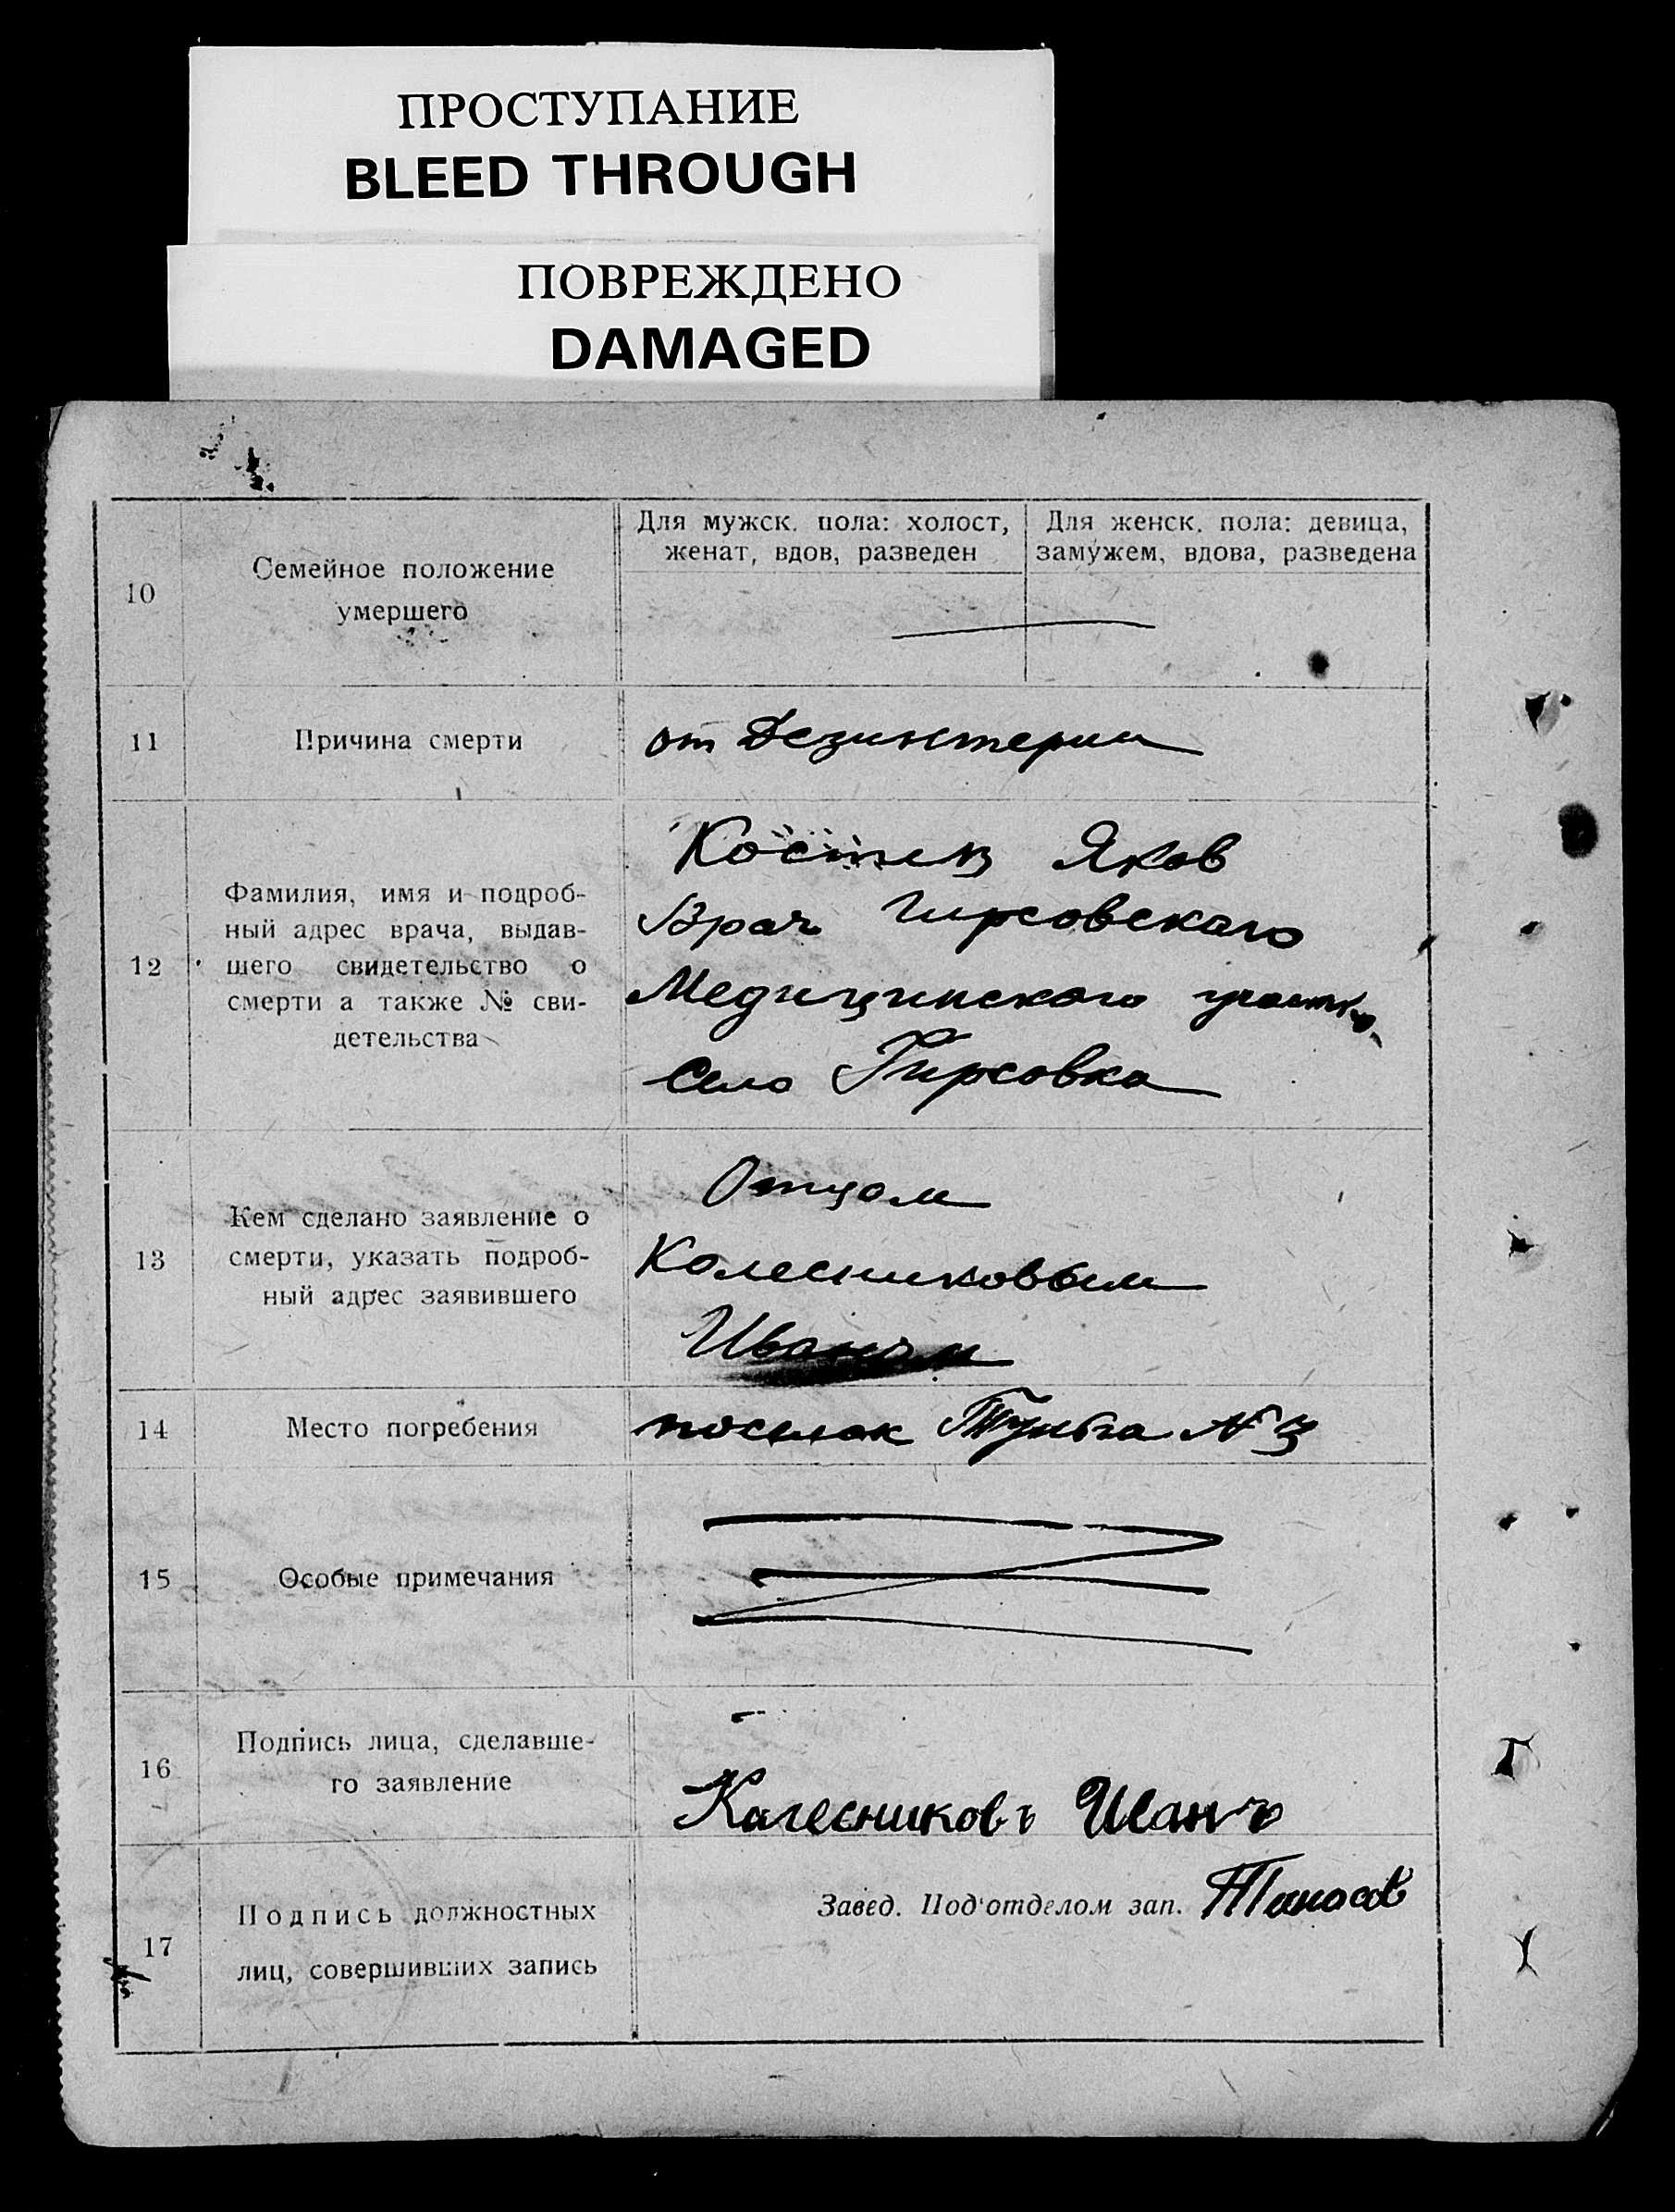 ПРОСТУПАНИЕ
BLEED THROUGH
ПОВРЕЖДЕНО
DAMAGED
10
Семейное положение
умершего
Для мужск. пола: холост,
женат, вдов, разведен
Для женск. пола: девица,
замужем, вдова, разведена
11
Причина смерти
от Дезинтерии
12
Фамилия, имя и подроб-
ный адрес врача, выдав-
шего свидетельство о
смерти а также № сви-
детельства
Яков
Врач Гирсовского
Медицинского участка
село Гирсовка
13
Кем сделано заявление о
смерти, указать подроб-
ный адрес заявившего
Отцом
Колесниковым
Иваном
14
Место погребения
поселок №3
15
Особые примечания
16
Подпись лица, сделавше-
го заявление
Калесниковъ Иванъ
17
Подпись должностных
лиц, совершивших запись
Завед. Под'отделом зап.